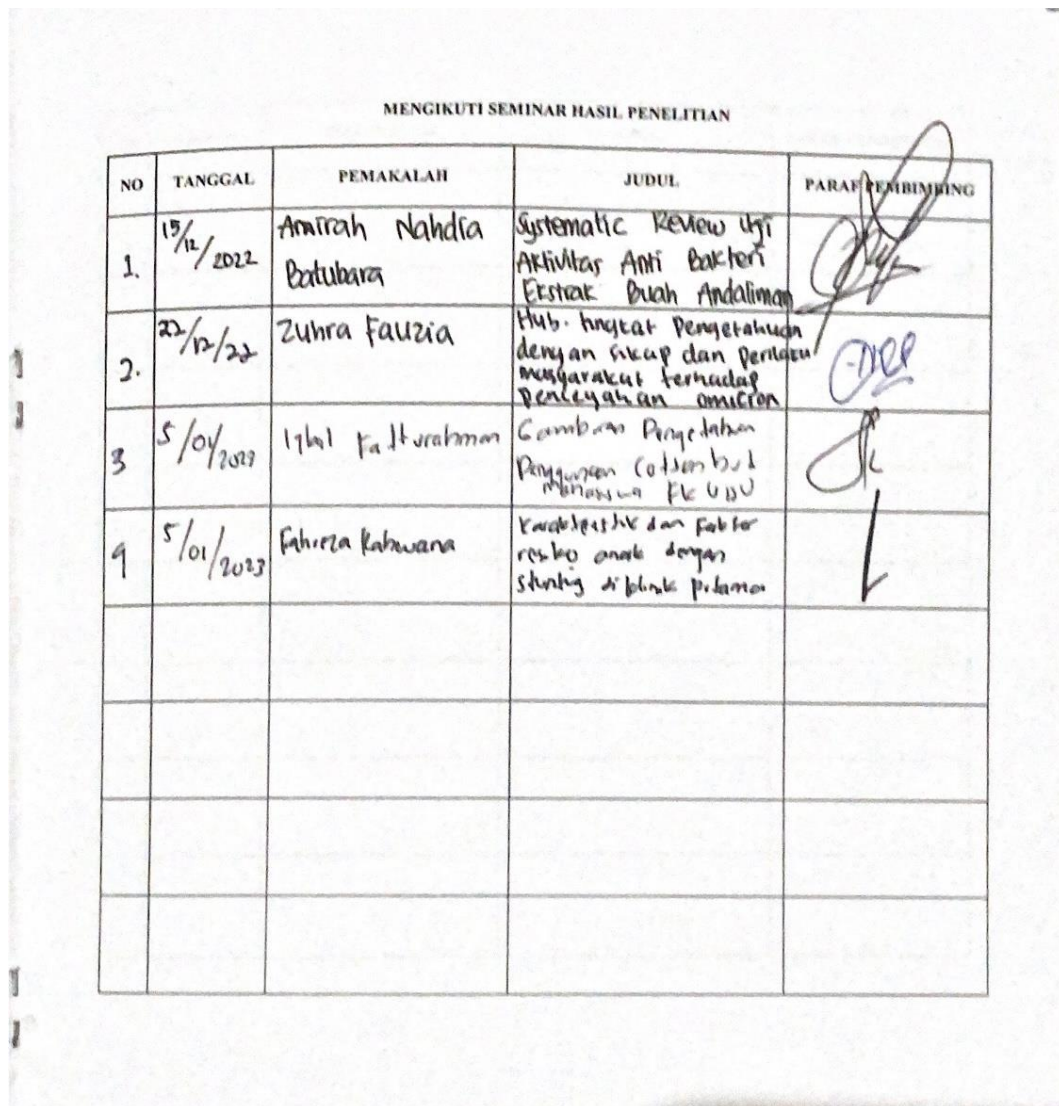 MENGIKUTI SEMINAR HASIL PENELITIAN
NO TANGGAL PEMAKALAH JUDUL PARAF PEMBIMBING
1. 15/12/2022 Amirah Nahdia Batubara
Systematic Review Uji
Aktivitas Anti Bakteri
Ekstrak Buah Andaliman
2. 22/12/22 Zuhra Fauzia
Hub. tingkat Pengetahuan
dengan sikap dan Perilaku
masyarakat terhadap
Pencegahan omicron
3 5/01/2023 Iqbal Fathurahman
Gambaran Pengetahuan
Penggunaan Cottonbud
Mahasiswa FK
4 5/01/2023 Fahreza
Karakteristik dan Faktor
resiko anak dengan
stunting di